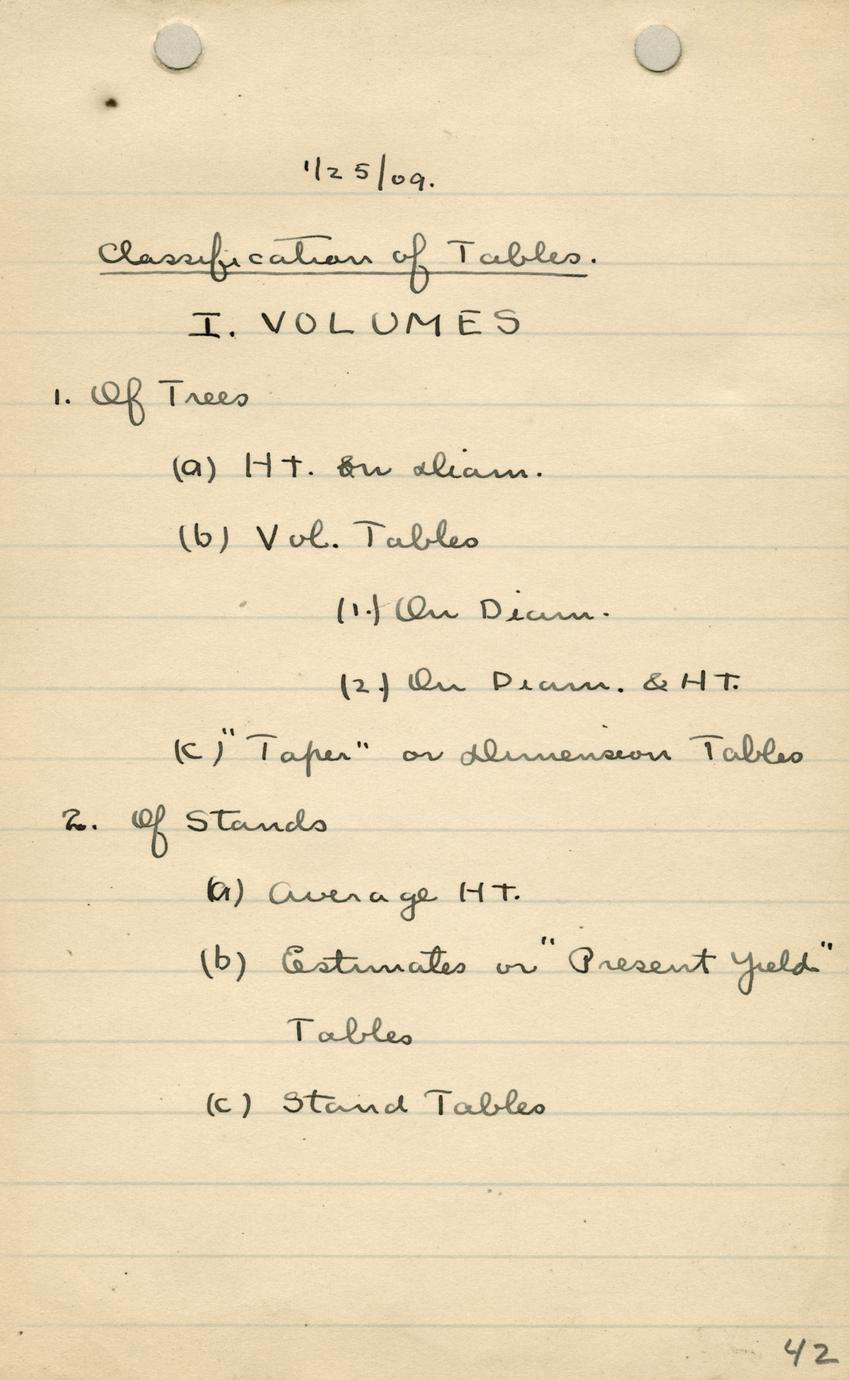 1/25/09.
Classification of Tables.
I. VOLUMES
1. Of Trees
(a) Ht. on diam.
(b) Vol. Tables
(1.) On Diam.
(2.) On Diam. & Ht.
(c) "Taper" or Dimension Tables
2. Of Stands
(a) Average Ht.
(b) Estimates or "Present Yield"
Tables
(c) Stand Tables
42